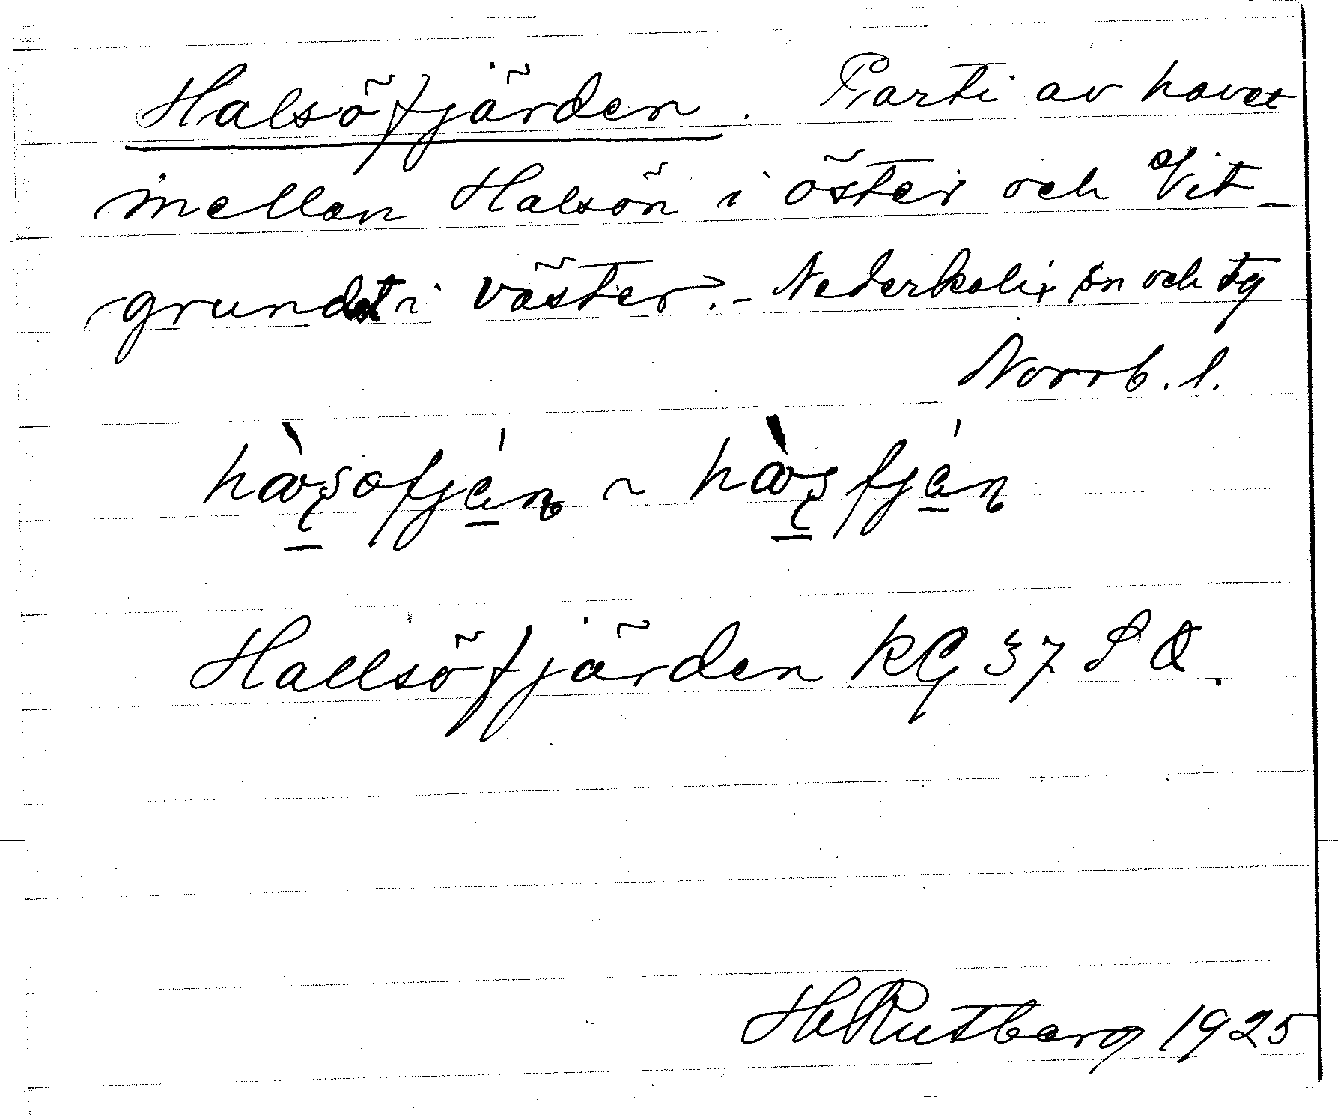 Halsöfjärden. Parti av havet
mellan Halsön i öster och Vit-
grundet i väster. - Nederkalix sn och tg
Norrb. l.
Hallsöfjärden KG 37 S O.
H Rutberg 1925